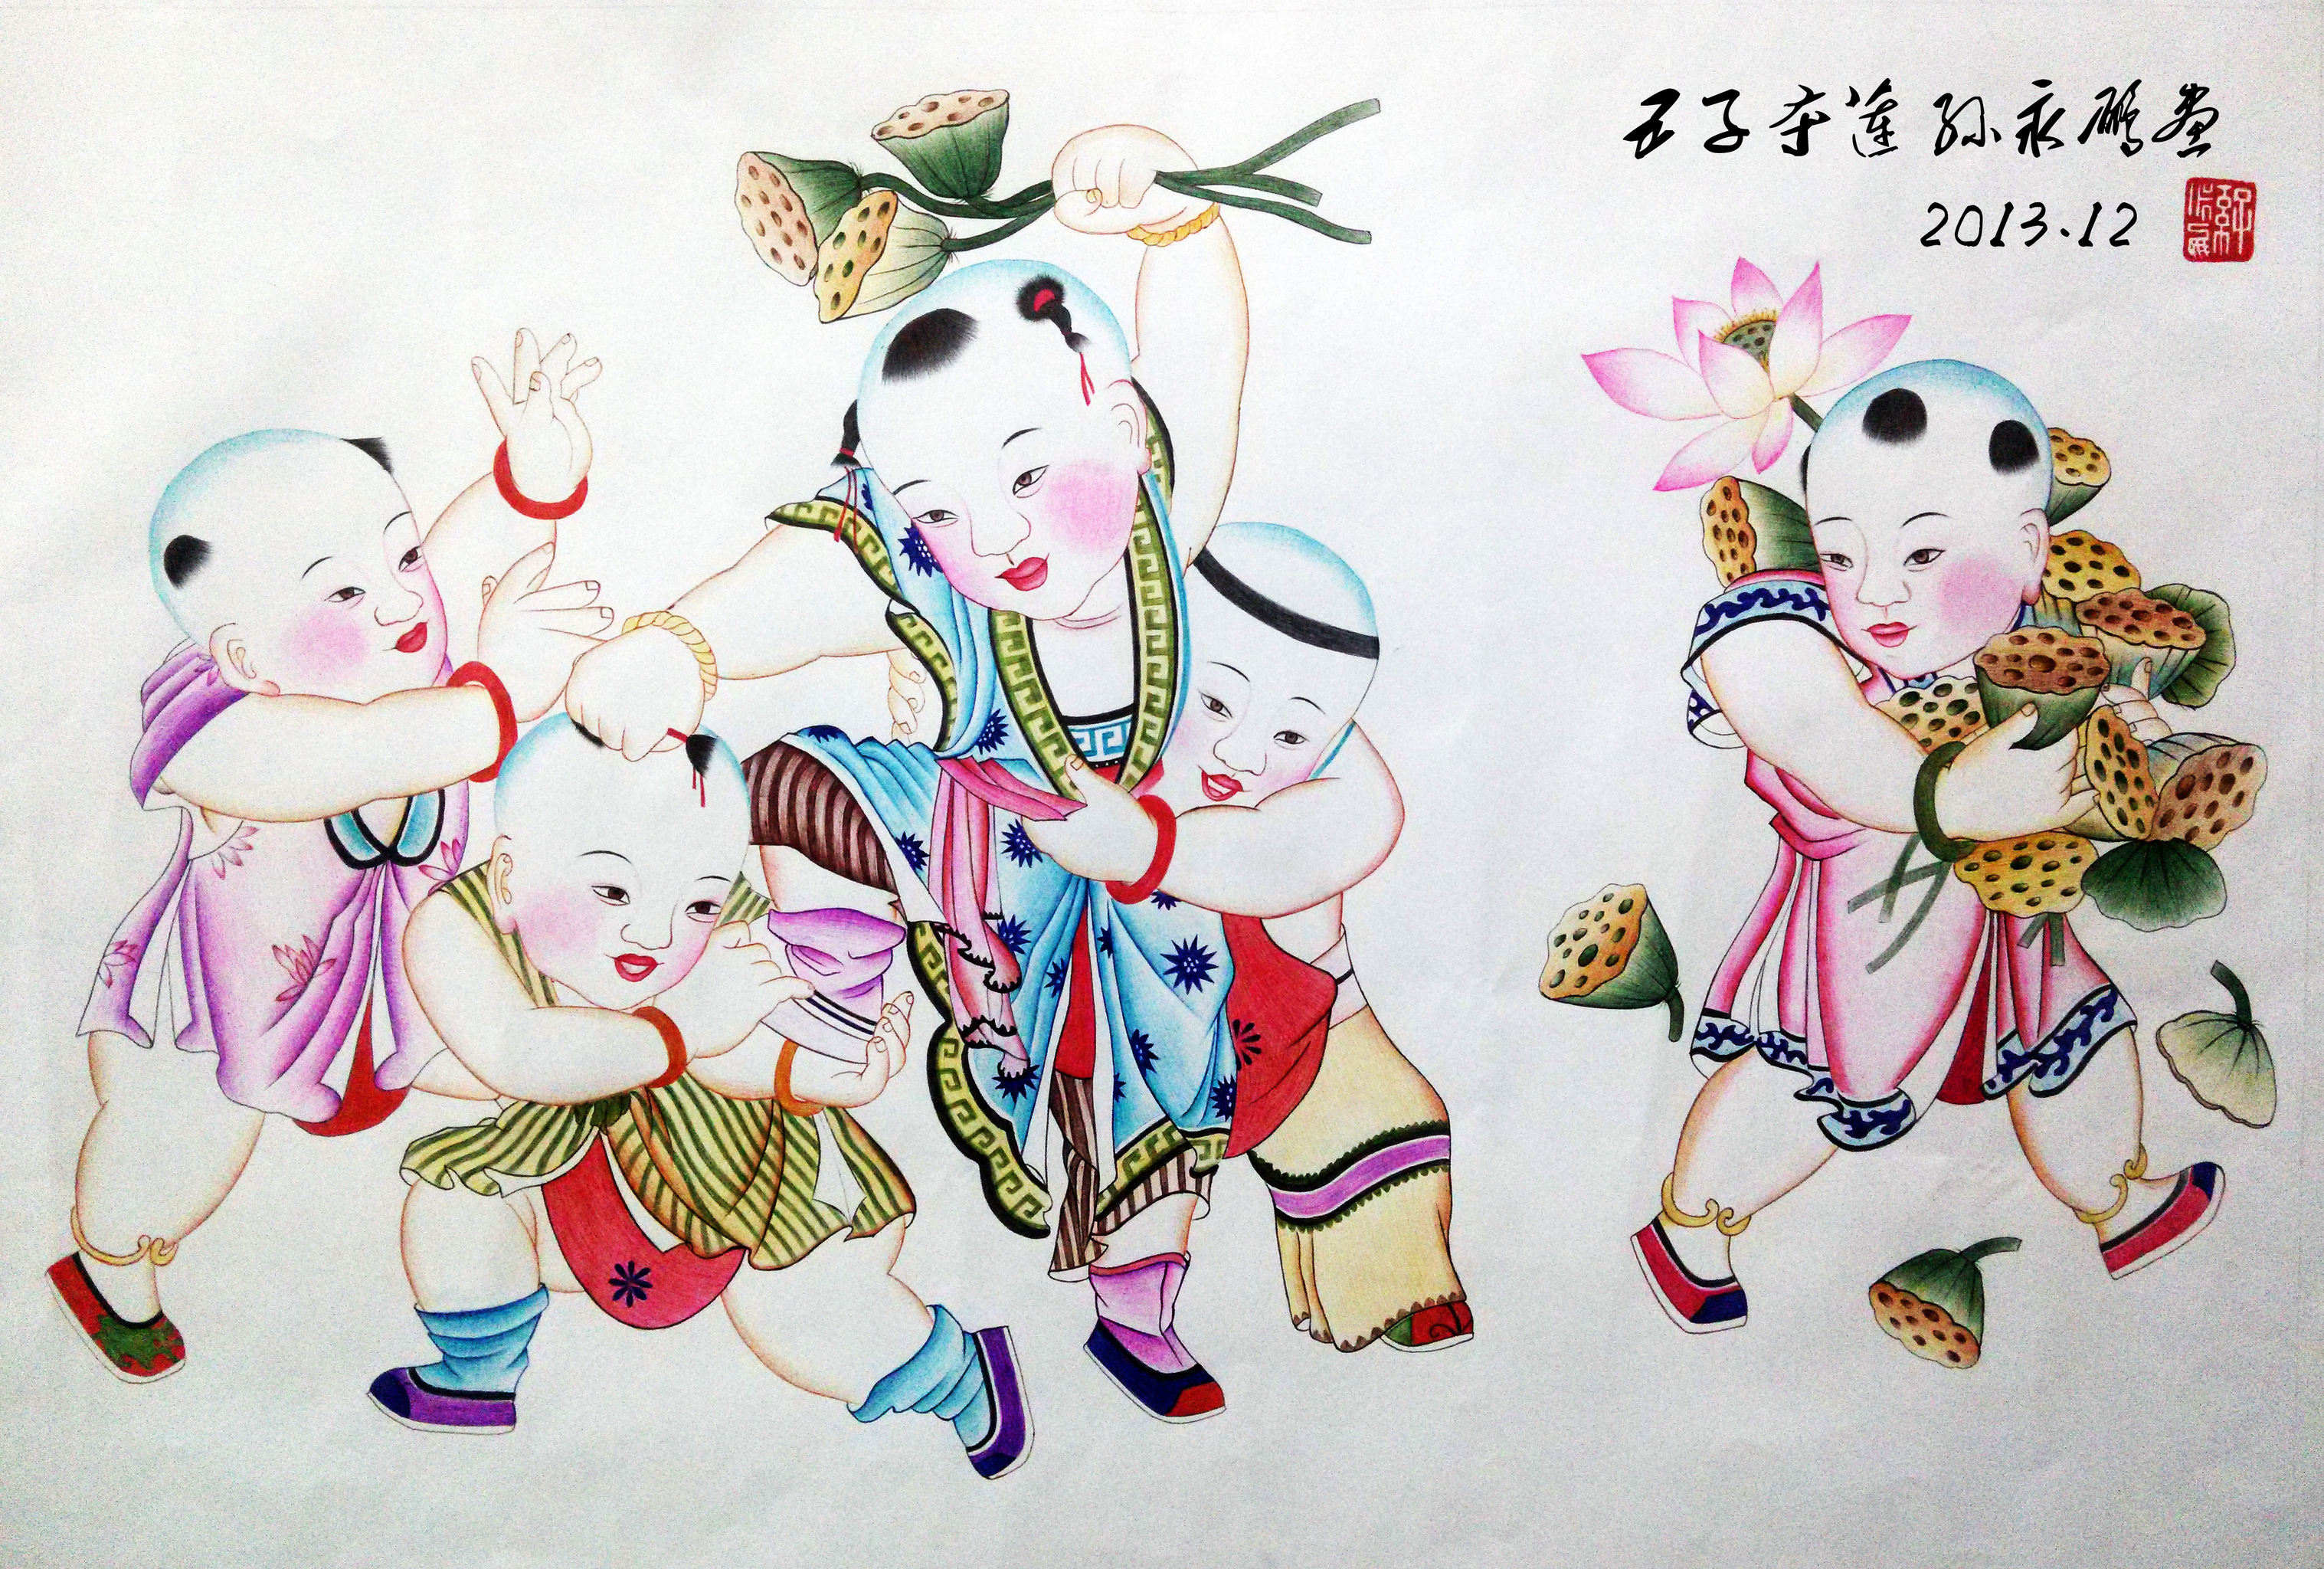 五子夺莲 孙永鹏画
2013.12